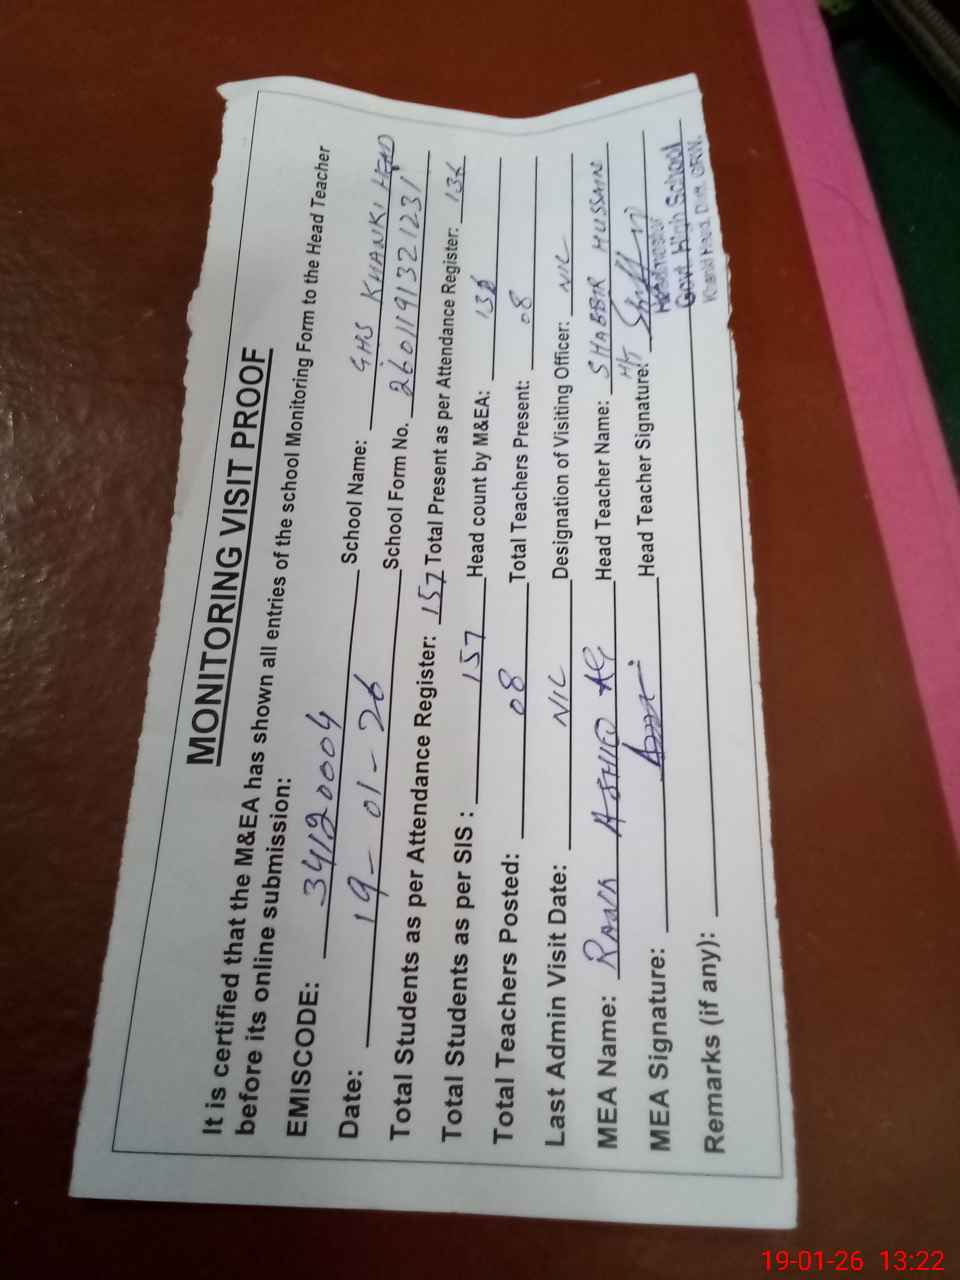 MONITORING VISIT PROOF
It is certified that the M&EA has shown all entries of the school Monitoring Form to the Head Teacher
before its online submission:
EMISCODE: 34120004 School Name: GHS KHANKI HEAD
Date: 19-01-26 School Form No. 2601191321231
Total Students as per Attendance Register: 157 Total Present as per Attendance Register: 136
Total Students as per SIS : 157 Head count by M&EA: 136
Total Teachers Posted: 08 Total Teachers Present: 08
Last Admin Visit Date: NIL Designation of Visiting Officer: NIL
MEA Name: RANA Head Teacher Name: SHABBIR HUSSAIN
MEA Signature: Head Teacher Signature:
Headmaster
Govt. High School
Khanki Head, Distt. GRW.
Remarks (if any):
19-01-26 13:22